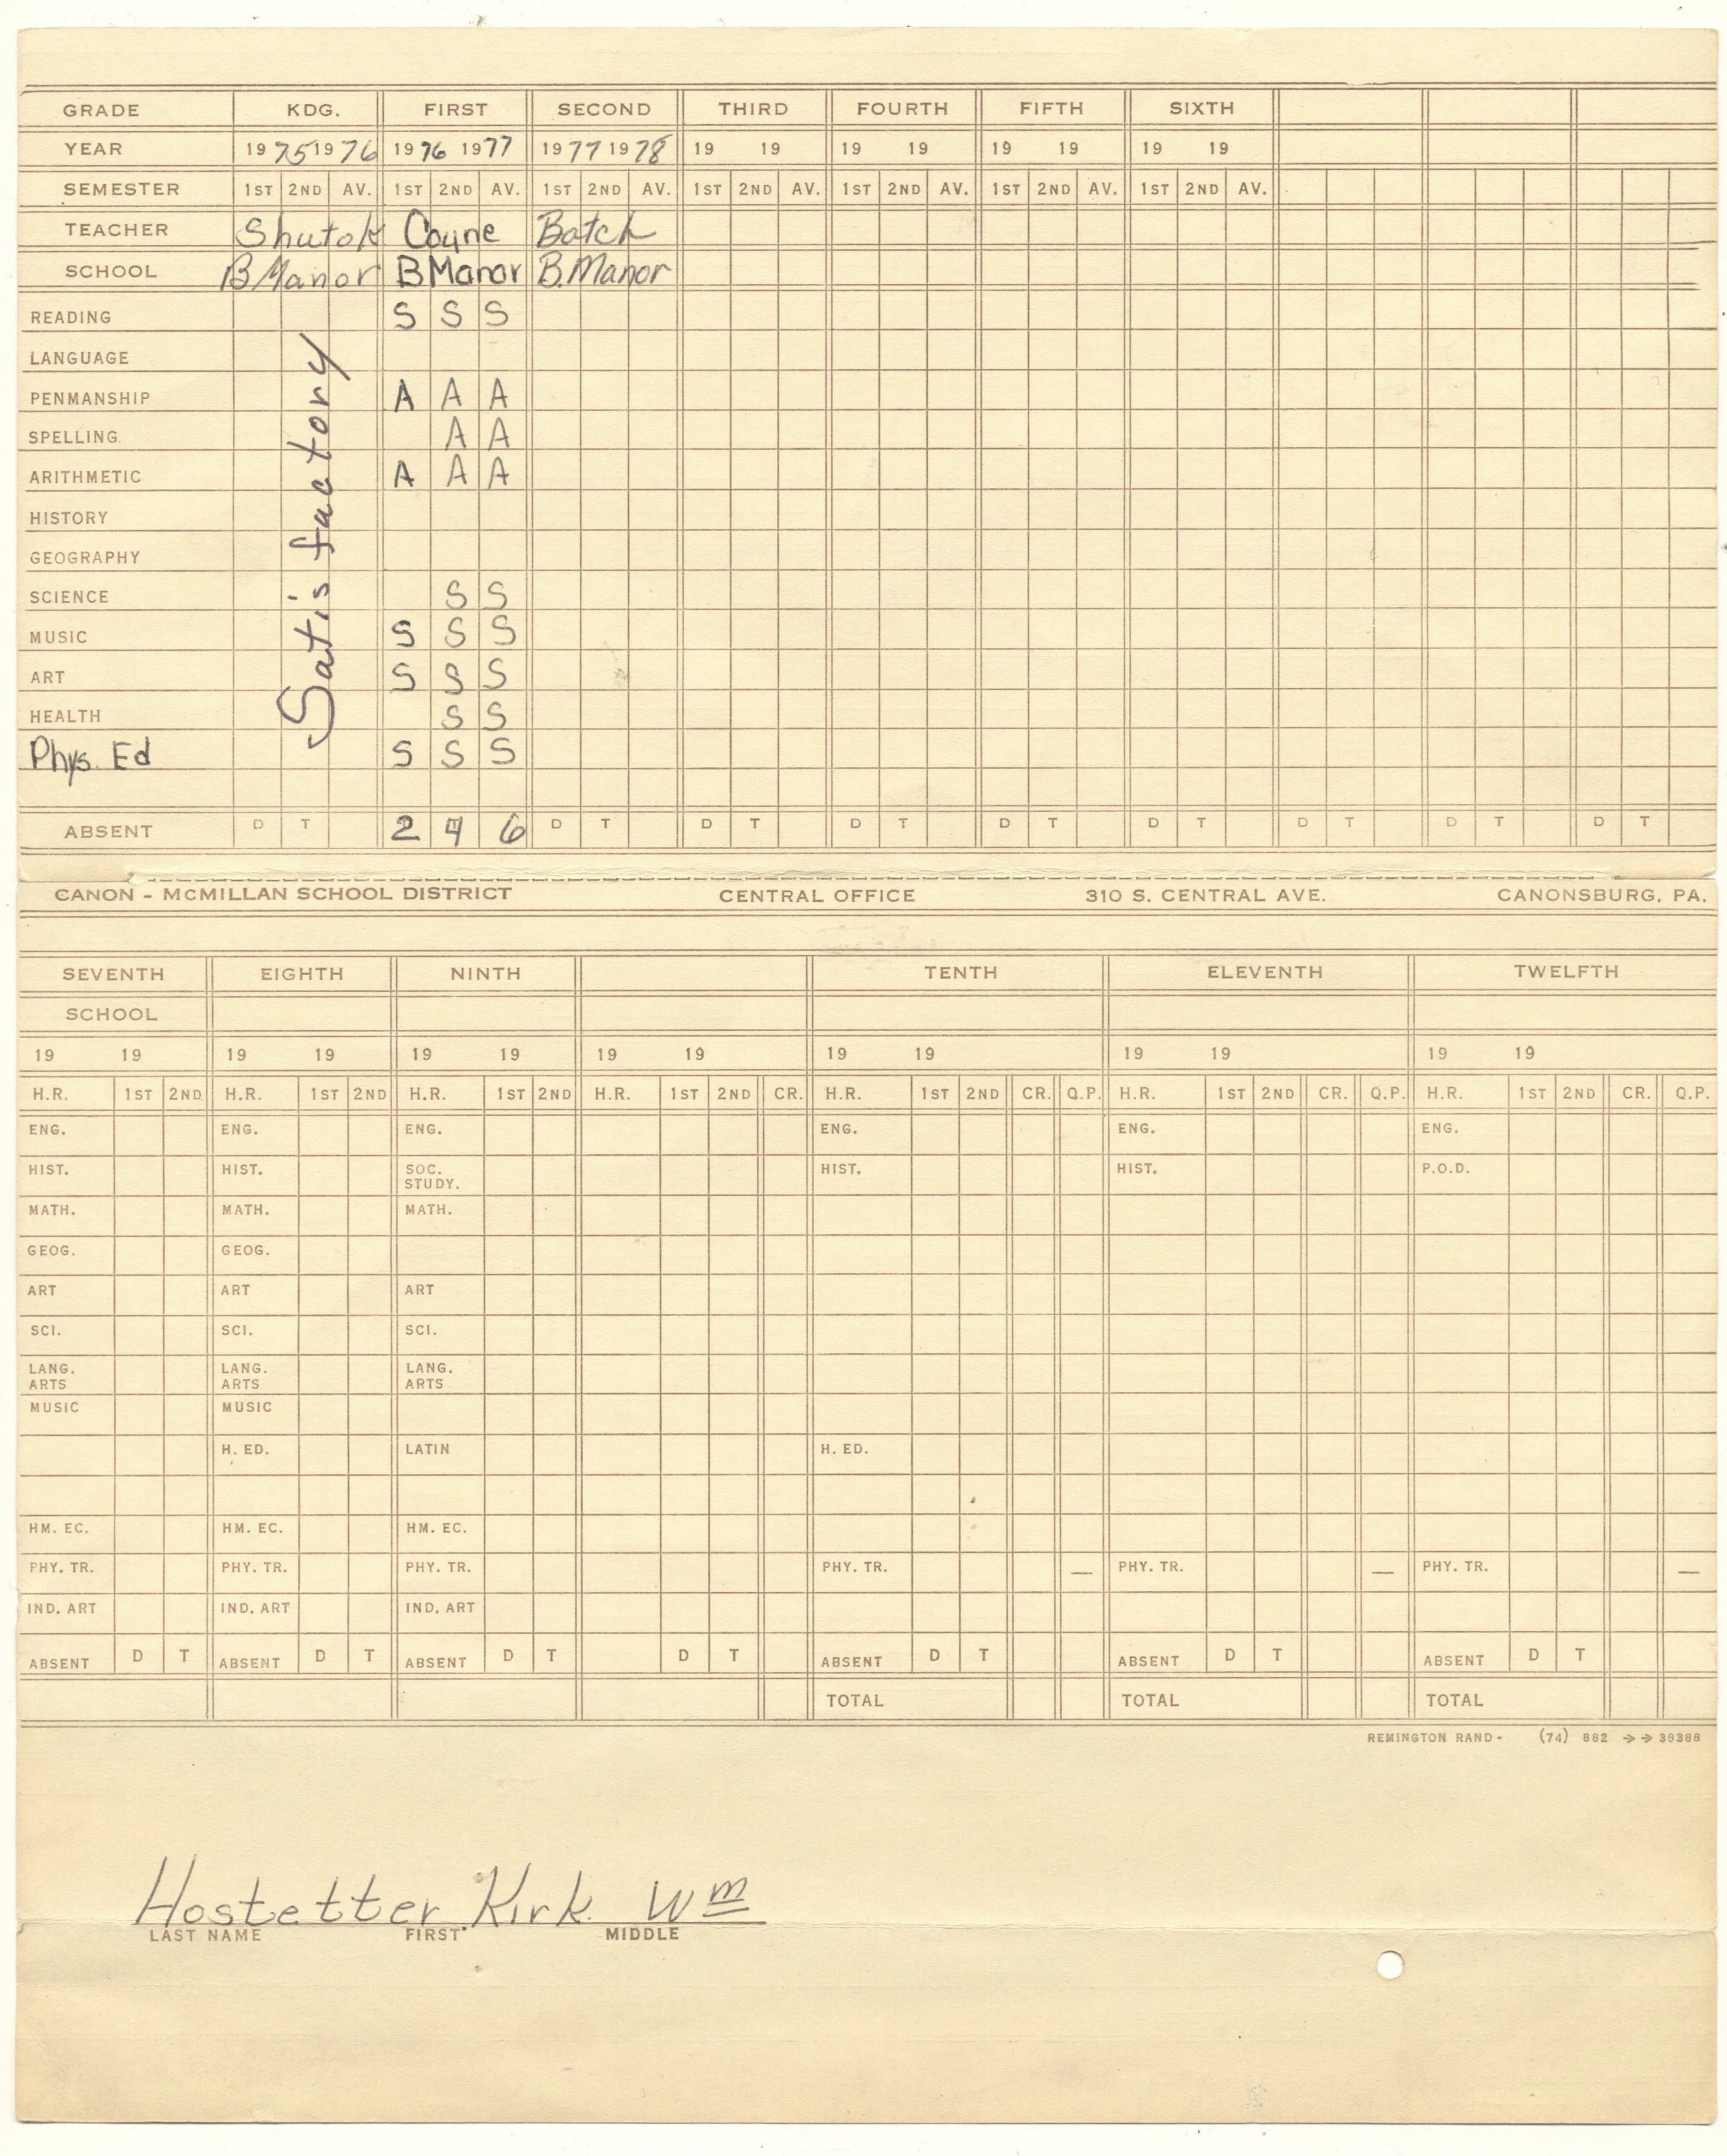 GRADE KDG. FIRST SECOND THIRD FOURTH FIFTH SIXTH
YEAR 1975 1976 1976 1977 1977 1978 19 19 19 19 19 19 19 19
SEMESTER 1ST 2ND AV. 1ST 2ND AV. 1ST 2ND AV. 1ST 2ND AV. 1ST 2ND AV. 1ST 2ND AV. 1ST 2ND AV.
TEACHER Shutok Coyne Batch
SCHOOL B Manor B Manor B. Manor
READING S S S
LANGUAGE
PENMANSHIP A A A
SPELLING A A
ARITHMETIC A A A
HISTORY
GEOGRAPHY
SCIENCE S S
MUSIC S S S
ART S S S
HEALTH S S
Phys. Ed S S S
Satisfactory
ABSENT D T 2 4 6 D T D T D T D T D T D T D T D T
CANON - MCMILLAN SCHOOL DISTRICT CENTRAL OFFICE 310 S. CENTRAL AVE. CANONSBURG, PA.
SEVENTH EIGHTH NINTH TENTH ELEVENTH TWELFTH
SCHOOL
19 19 19 19 19 19 19 19 19 19 19 19 19 19
H.R. 1ST 2ND H.R. 1ST 2ND H.R. 1ST 2ND H.R. 1ST 2ND CR. H.R. 1ST 2ND CR. Q.P. H.R. 1ST 2ND CR. Q.P. H.R. 1ST 2ND CR. Q.P.
ENG. ENG. ENG. ENG. ENG. ENG.
HIST. HIST. SOC. STUDY. HIST. HIST. P.O.D.
MATH. MATH. MATH.
GEOG. GEOG.
ART ART ART
SCI. SCI. SCI.
LANG. ARTS LANG. ARTS LANG. ARTS
MUSIC MUSIC
H. ED. LATIN H. ED.
HM. EC. HM. EC. HM. EC.
PHY. TR. PHY. TR. PHY. TR. PHY. TR. — PHY. TR. — PHY. TR. —
IND. ART IND. ART IND. ART
ABSENT D T ABSENT D T ABSENT D T D T ABSENT D T ABSENT D T ABSENT D T
TOTAL TOTAL TOTAL
REMINGTON RAND - (74) 882 →→ 39386
Hostetter Kirk Wm
LAST NAME FIRST MIDDLE